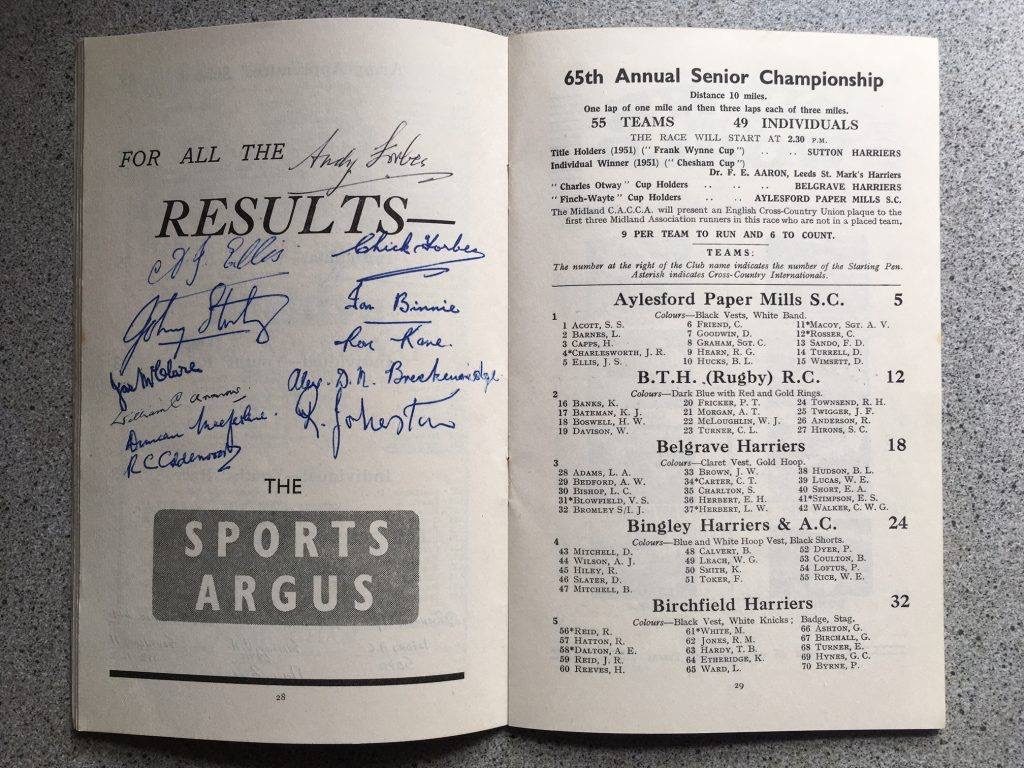 FOR ALL THE
Andy Forbes
RESULTS—
Ellis
Chick Forbes
Ian Binnie
Ron Kane.
Alex. D. N. Breckenridge
William C
Duncan
R. Johnston
THE
SPORTS
ARGUS
28
65th Annual Senior Championship
Distance 10 miles.
One lap of one mile and then three laps each of three miles.
55 TEAMS 49 INDIVIDUALS
THE RACE WILL START AT 2.30 P.M.
Title Holders (1951) ("Frank Wynne Cup") .. .. SUTTON HARRIERS
Individual Winner (1951) ("Chesham Cup")
Dr. F. E. AARON, Leeds St. Mark's Harriers
"Charles Otway" Cup Holders .. .. .. BELGRAVE HARRIERS
"Finch-Wayte" Cup Holders .. .. AYLESFORD PAPER MILLS S.C.
The Midland C.A.C.C.A. will present an English Cross-Country Union plaque to the
first three Midland Association runners in this race who are not in a placed team.
9 PER TEAM TO RUN AND 6 TO COUNT.
TEAMS:
The number at the right of the Club name indicates the number of the Starting Pen.
Asterisk indicates Cross-Country Internationals.
Aylesford Paper Mills S.C. 5
1 Colours—Black Vests, White Band.
1 ACOTT, S. S. 6 FRIEND, C. 11*MACOY, SGT. A. V.
2 BARNES, L. 7 GOODWIN, D. 12*ROSSER, C.
3 CAPPS, H. 8 GRAHAM, SGT. C. 13 SANDO, F. D.
4*CHARLESWORTH, J. R. 9 HEARN, R. G. 14 TURRELL, D.
5 ELLIS, J. S. 10 HUCKS, B. L. 15 WIMSETT, D.
B.T.H. (Rugby) R.C. 12
2 Colours—Dark Blue with Red and Gold Rings.
16 BANKS, K. 20 FRICKER, P. T. 24 TOWNSEND, R. H.
17 BATEMAN, K. J. 21 MORGAN, A. T. 25 TWIGGER, J. F.
18 BOSWELL, H. W. 22 MCLOUGHLIN, W. J. 26 ANDERSON, R.
19 DAVISON, W. 23 TURNER, C. L. 27 HIRONS, S. C.
Belgrave Harriers 18
3 Colours—Claret Vest, Gold Hoop.
28 ADAMS, L. A. 33 BROWN, J. W. 38 HUDSON, B. L.
29 BEDFORD, A. W. 34*CARTER, C. T. 39 LUCAS, W. E.
30 BISHOP, L. C. 35 CHARLTON, S. 40 SHORT, E. A.
31*BLOWFIELD, V. S. 36 HERBERT, E. H. 41*STIMPSON, E. S.
32 BROMLEY S/I. J. 37*HERBERT, L. W. 42 WALKER, C. W. G.
Bingley Harriers & A.C. 24
4 Colours—Blue and White Hoop Vest, Black Shorts.
43 MITCHELL, D. 48 CALVERT, B. 52 DYER, P.
44 WILSON, A. J. 49 LEACH, W. G. 53 COULTON, B.
45 HILEY, R. 50 SMITH, K. 54 LOFTUS, P.
46 SLATER, D. 51 TOKER, F. 55 RICE, W. E.
47 MITCHELL, B.
Birchfield Harriers 32
5 Colours—Black Vest, White Knicks; Badge, Stag.
56*REID, R. 61*WHITE, M. 66 ASHTON, G.
57 HATTON, R. 62 JONES, R. M. 67 BIRCHALL, G.
58*DALTON, A. E. 63 HARDY, T. B. 68 TURNER, E.
59 REID, J. R. 64 ETHERIDGE, K. 69 HYNES, G. C.
60 REEVES, H. 65 WARD, L. 70 BYRNE, P.
29